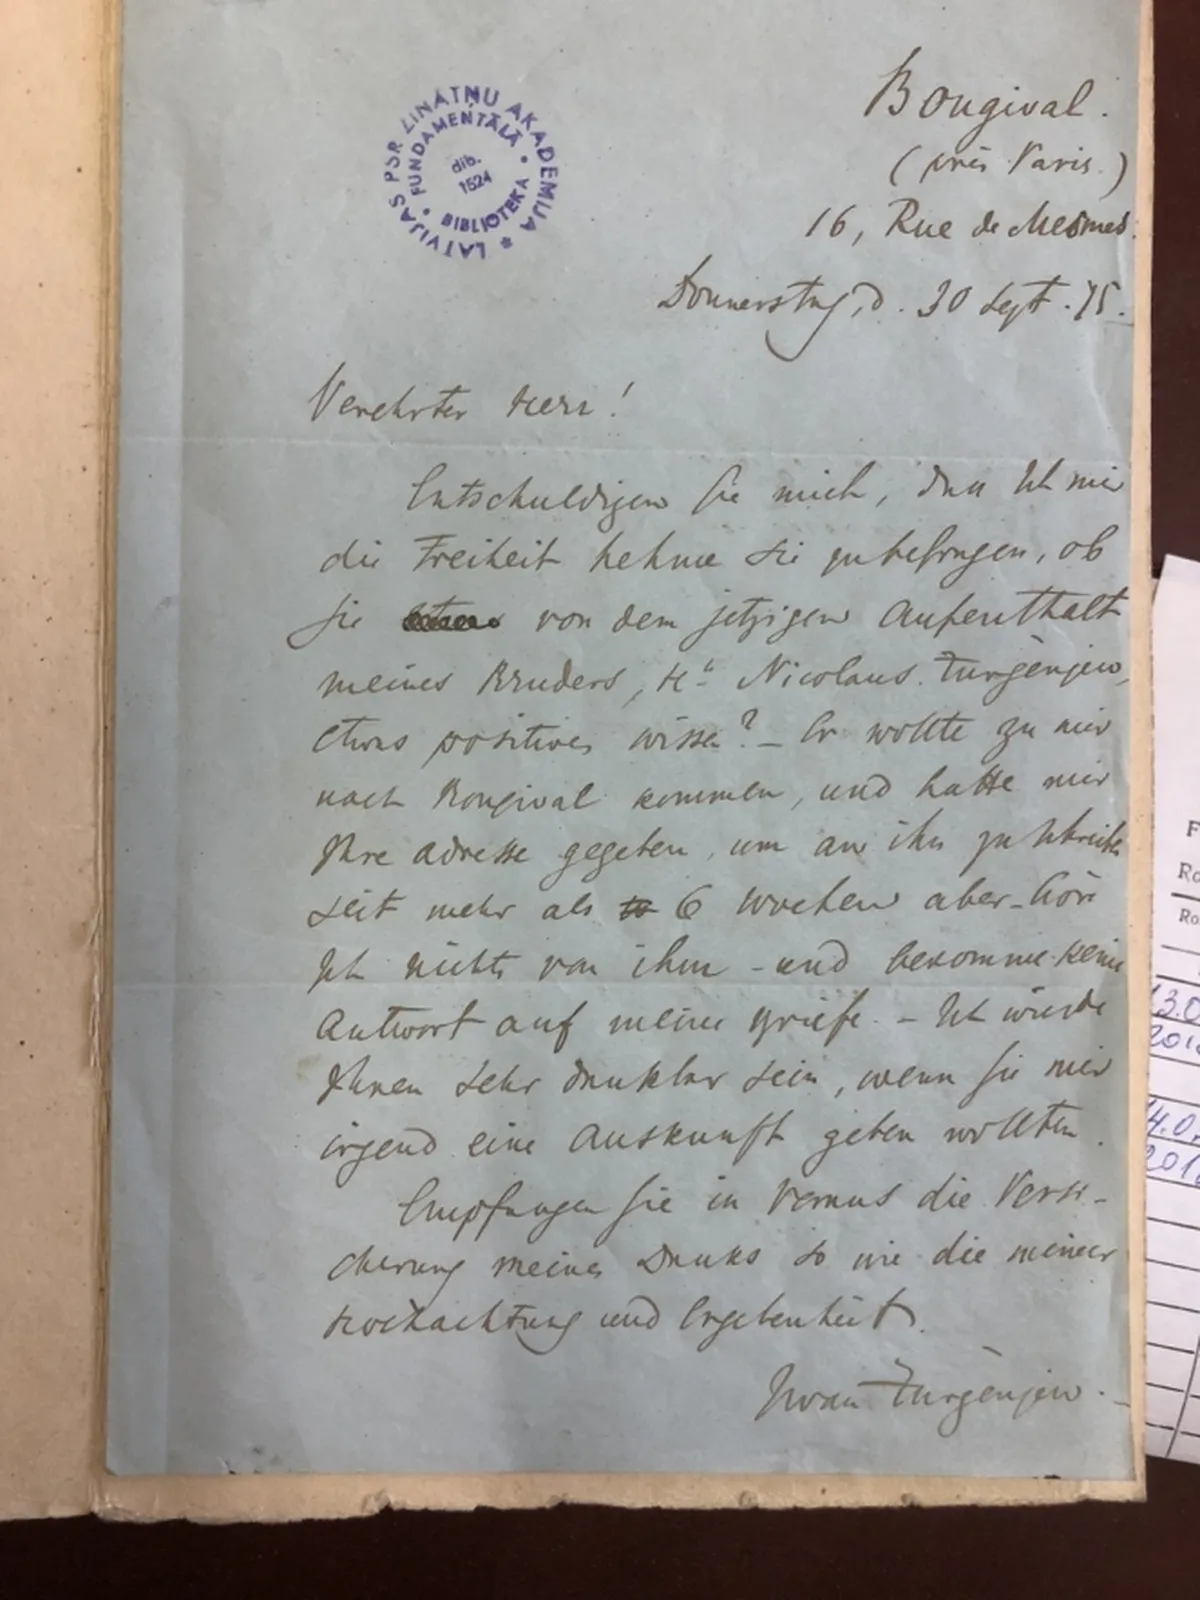 LATVIJAS PSR ZINĀTŅU AKADEMIJA *
• FUNDAMENTĀLĀ • BIBLIOTEKA
dib.
1524
Bougival.
(près Paris.)
16, Rue de Mesmes.
Donnerstag, d. 30 Sept. 75.
Verehrter Herr!
Entschuldigen Sie mich, dass Ich mir
die Freiheit nehme Sie zu befragen, ob
Sie von dem jetzigen Aufenthalt
meines Bruders, Hn Nicolaus Turgénjew,
etwas positives wissen? – Er wollte zu mir
nach Bougival kommen, und hatte mir
Ihre Adresse gegeben, um an ihn zu schreiben
seit mehr als 6 Wochen aber – höre
Ich nichts von ihm – und bekomme keine
Antwort auf meine Briefe. – Ich würde
Ihnen sehr dankbar sein, wenn Sie mir
irgend eine Auskunft geben wollten.
Empfangen Sie in Voraus die Versi-
cherung meines Danks so wie die meiner
Hochachtung und Ergebenheit.
Iwan Turgénjew. –
F
Ro
Ro
13.0
201
14.0
201